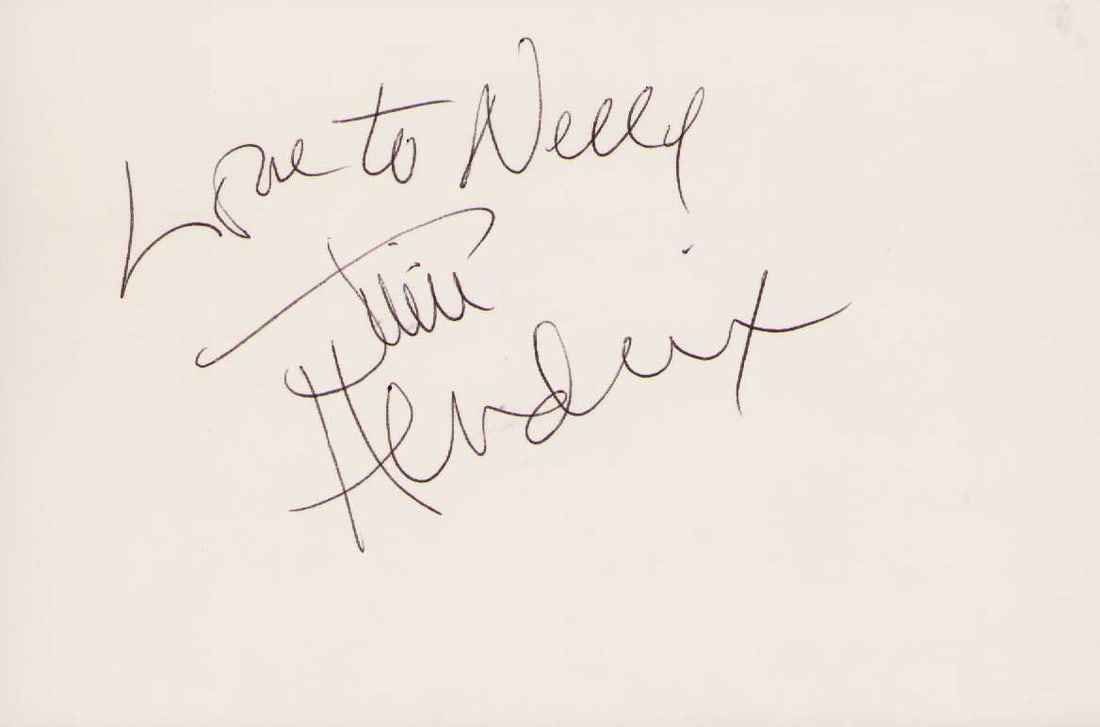 Love to Nelly
Jimi
Hendrix